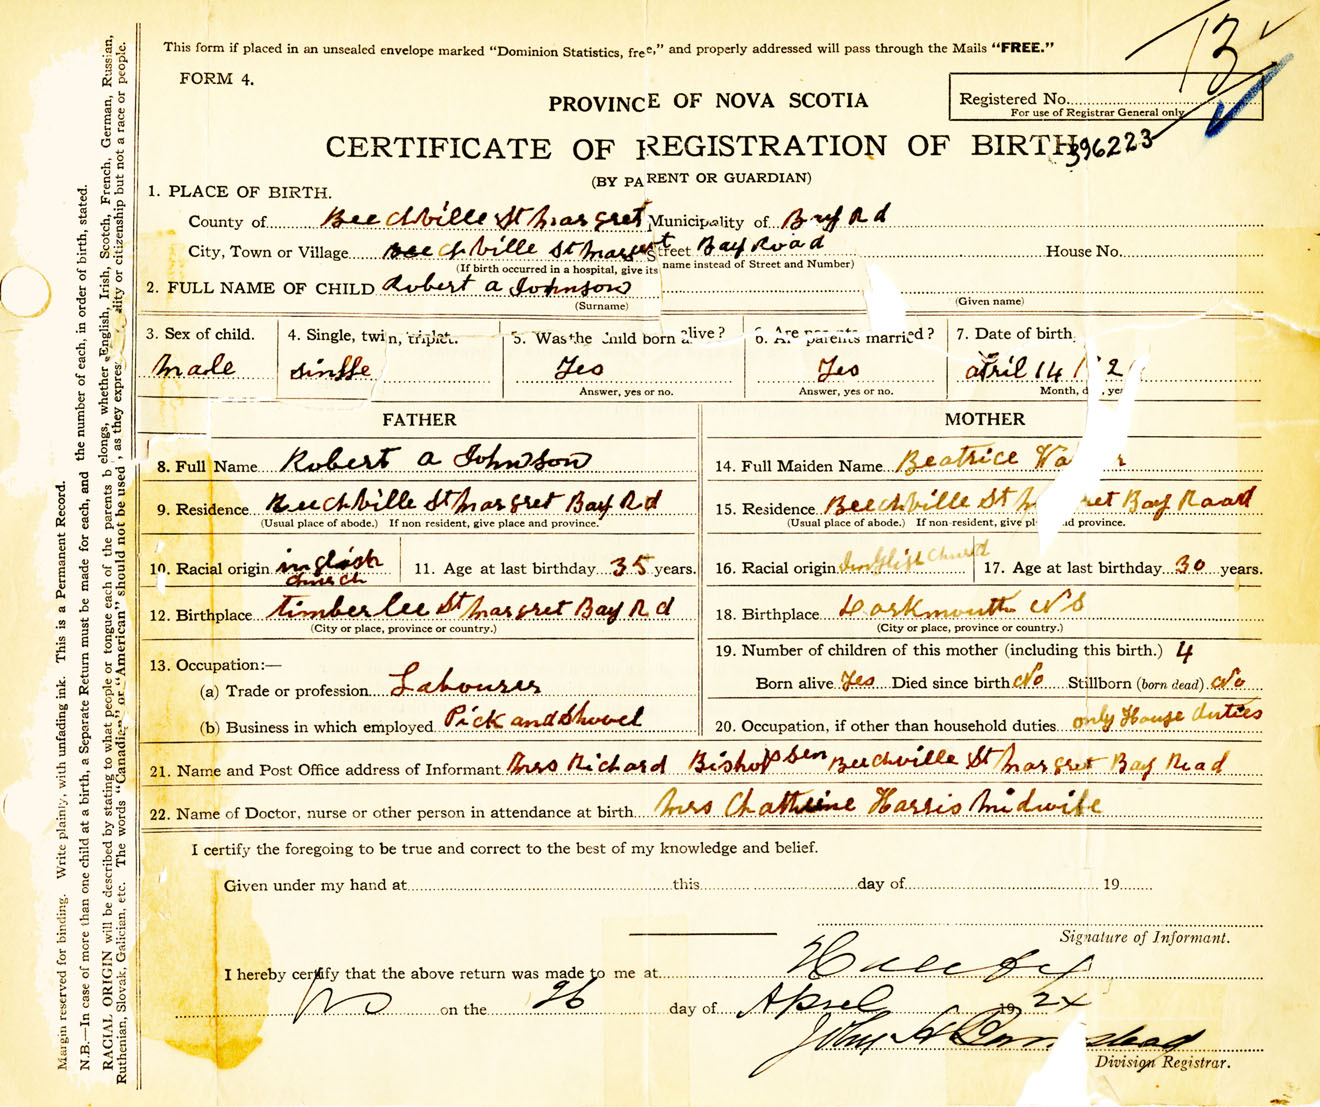 This form if placed in an unsealed envelope marked "Dominion Statistics, free," and properly addressed will pass through the Mails "FREE."
FORM 4.
13
PROVINCE OF NOVA SCOTIA
Registered No.
For use of Registrar General only
CERTIFICATE OF REGISTRATION OF BIRTH
396223
(BY PARENT OR GUARDIAN)
1. PLACE OF BIRTH.
County of Beechville St Margret Municipality of Bay Rd
City, Town or Village Beechville St Margret Street Bay Road House No.
(If birth occurred in a hospital, give its name instead of Street and Number)
2. FULL NAME OF CHILD Robert a Johnson
(Surname) (Given name)
3. Sex of child. 4. Single, twin, triplet. 5. Was the child born alive? 6. Are parents married? 7. Date of birth.
male single Yes Yes april 14
Answer, yes or no. Answer, yes or no. Month, day, year
FATHER MOTHER
8. Full Name Robert a Johnson 14. Full Maiden Name Beatrice
9. Residence Beechville St Margret Bay Rd 15. Residence Beechville St Margret Bay Road
(Usual place of abode.) If non resident, give place and province. (Usual place of abode.) If non-resident, give place and province.
10. Racial origin inglish church 11. Age at last birthday 35 years. 16. Racial origin Inglish Church 17. Age at last birthday 30 years.
12. Birthplace timberlee St Margret Bay Rd 18. Birthplace Darkmouth NS
(City or place, province or country.) (City or place, province or country.)
13. Occupation:— 19. Number of children of this mother (including this birth.) 4
(a) Trade or profession Labourer Born alive Yes Died since birth No Stillborn (born dead) No
(b) Business in which employed Pick and Shovel 20. Occupation, if other than household duties only House duties
21. Name and Post Office address of Informant Mrs Richard Bishop Sen Beechville St Margret Bay Road
22. Name of Doctor, nurse or other person in attendance at birth Mrs Chathrine Harris Midwife
I certify the foregoing to be true and correct to the best of my knowledge and belief.
Given under my hand at this day of 19
Signature of Informant.
I hereby certify that the above return was made to me at Halifax
NS on the 26 day of April 192
John A
Division Registrar.
Margin reserved for binding. Write plainly, with unfading ink. This is a Permanent Record.
N.B.—In case of more than one child at a birth, a Separate Return must be made for each, and the number of each, in order of birth, stated.
RACIAL ORIGIN will be described by stating to what people or tongue each of the parents belongs, whether English, Irish, Scotch, French, German, Russian,
Ruthenian, Slovak, Galician, etc. The words "Canadian" or "American" should not be used, as they express or citizenship but not a race or people.